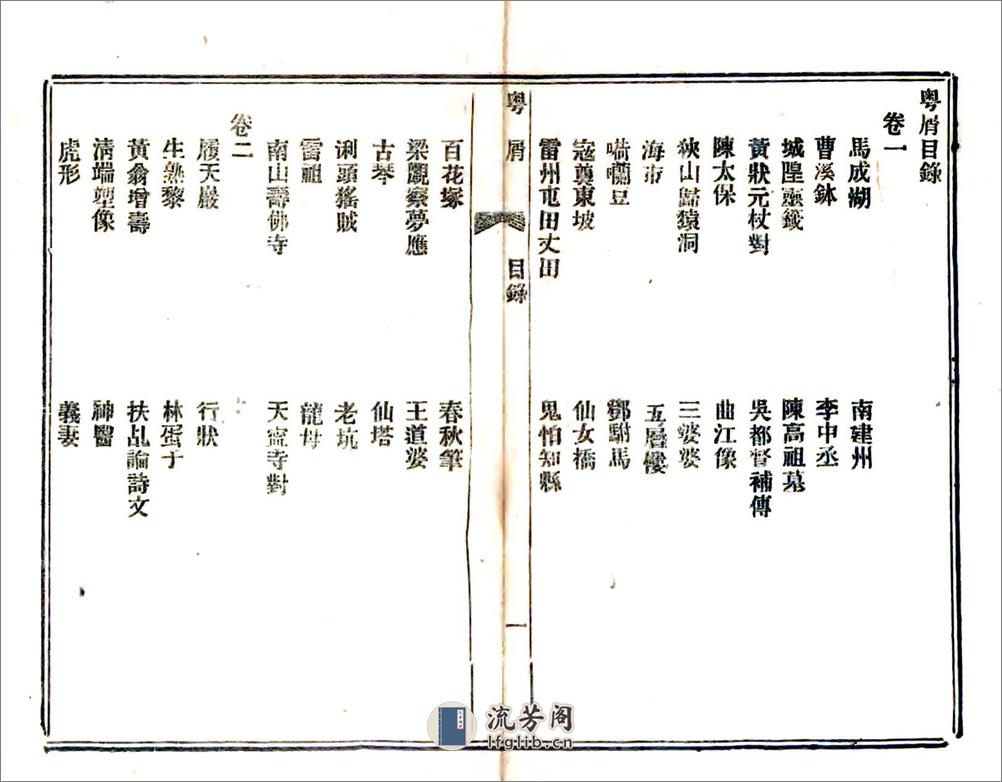 粵屑目錄
卷一
馬成湖 南建州
曹溪鉢 李中丞
城隍靈籤 陳高祖墓
黃狀元杖對 吳都督補傳
陳太保 曲江像
峽山歸猿洞 三婆婆
海市 五層樓
嗬囒豆 鄧駙馬
寇萊東坡 仙女橋
雷州屯田丈田 鬼怕知縣
粵屑 目錄 一
百花塚 春秋筆
梁觀察夢應 王道婆
古琴 仙塔
浰頭猺賊 老坑
雷祖 龍母
南山壽佛寺 天寧寺對
卷二
履天巖 行狀
生熟黎 林蛋子
黃翁增壽 扶乩論詩文
清端塑像 神醫
虎形 義妻
流芳阁
lfglib.cn